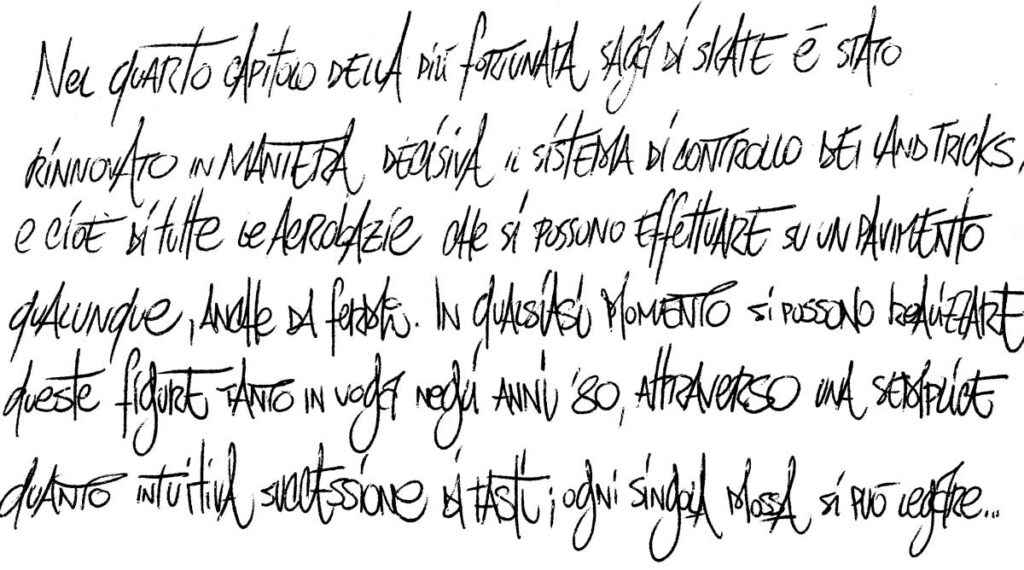 Nel quarto capitolo della più fortunata saga di skate è stato
rinnovato in maniera decisiva il sistema di controllo dei land tricks,
e cioè di tutte le acrobazie che si possono effettuare su un pavimento
qualunque, anche da fermi. In qualsiasi momento si possono realizzare
queste figure tanto in voga negli anni '80, attraverso una semplice
quanto intuitiva successione di tasti; ogni singola mossa si può legare...